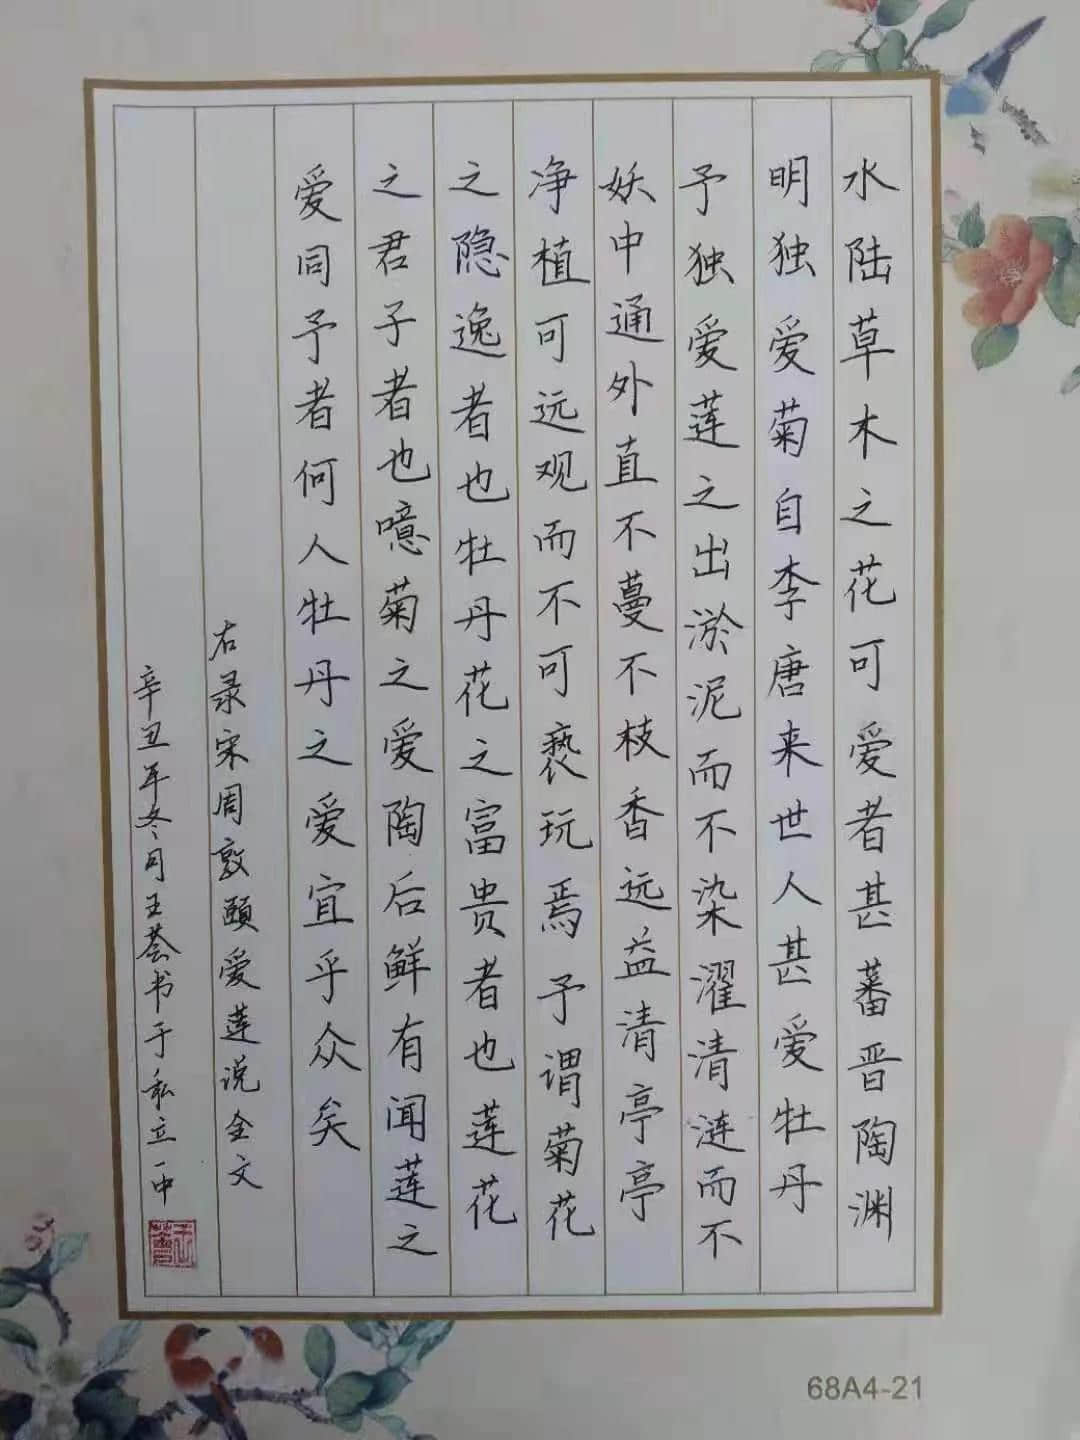 水陆草木之花可爱者甚蕃晋陶渊
明独爱菊自李唐来世人甚爱牡丹
予独爱莲之出淤泥而不染濯清涟而不
妖中通外直不蔓不枝香远益清亭亭
净植可远观而不可亵玩焉予谓菊花
之隐逸者也牡丹花之富贵者也莲花
之君子者也噫菊之爱陶后鲜有闻莲之
爱同予者何人牡丹之爱宜乎众矣
右录宋周敦颐爱莲说全文
辛丑年冬月王荟书于私立一中
王荟
68A4-21